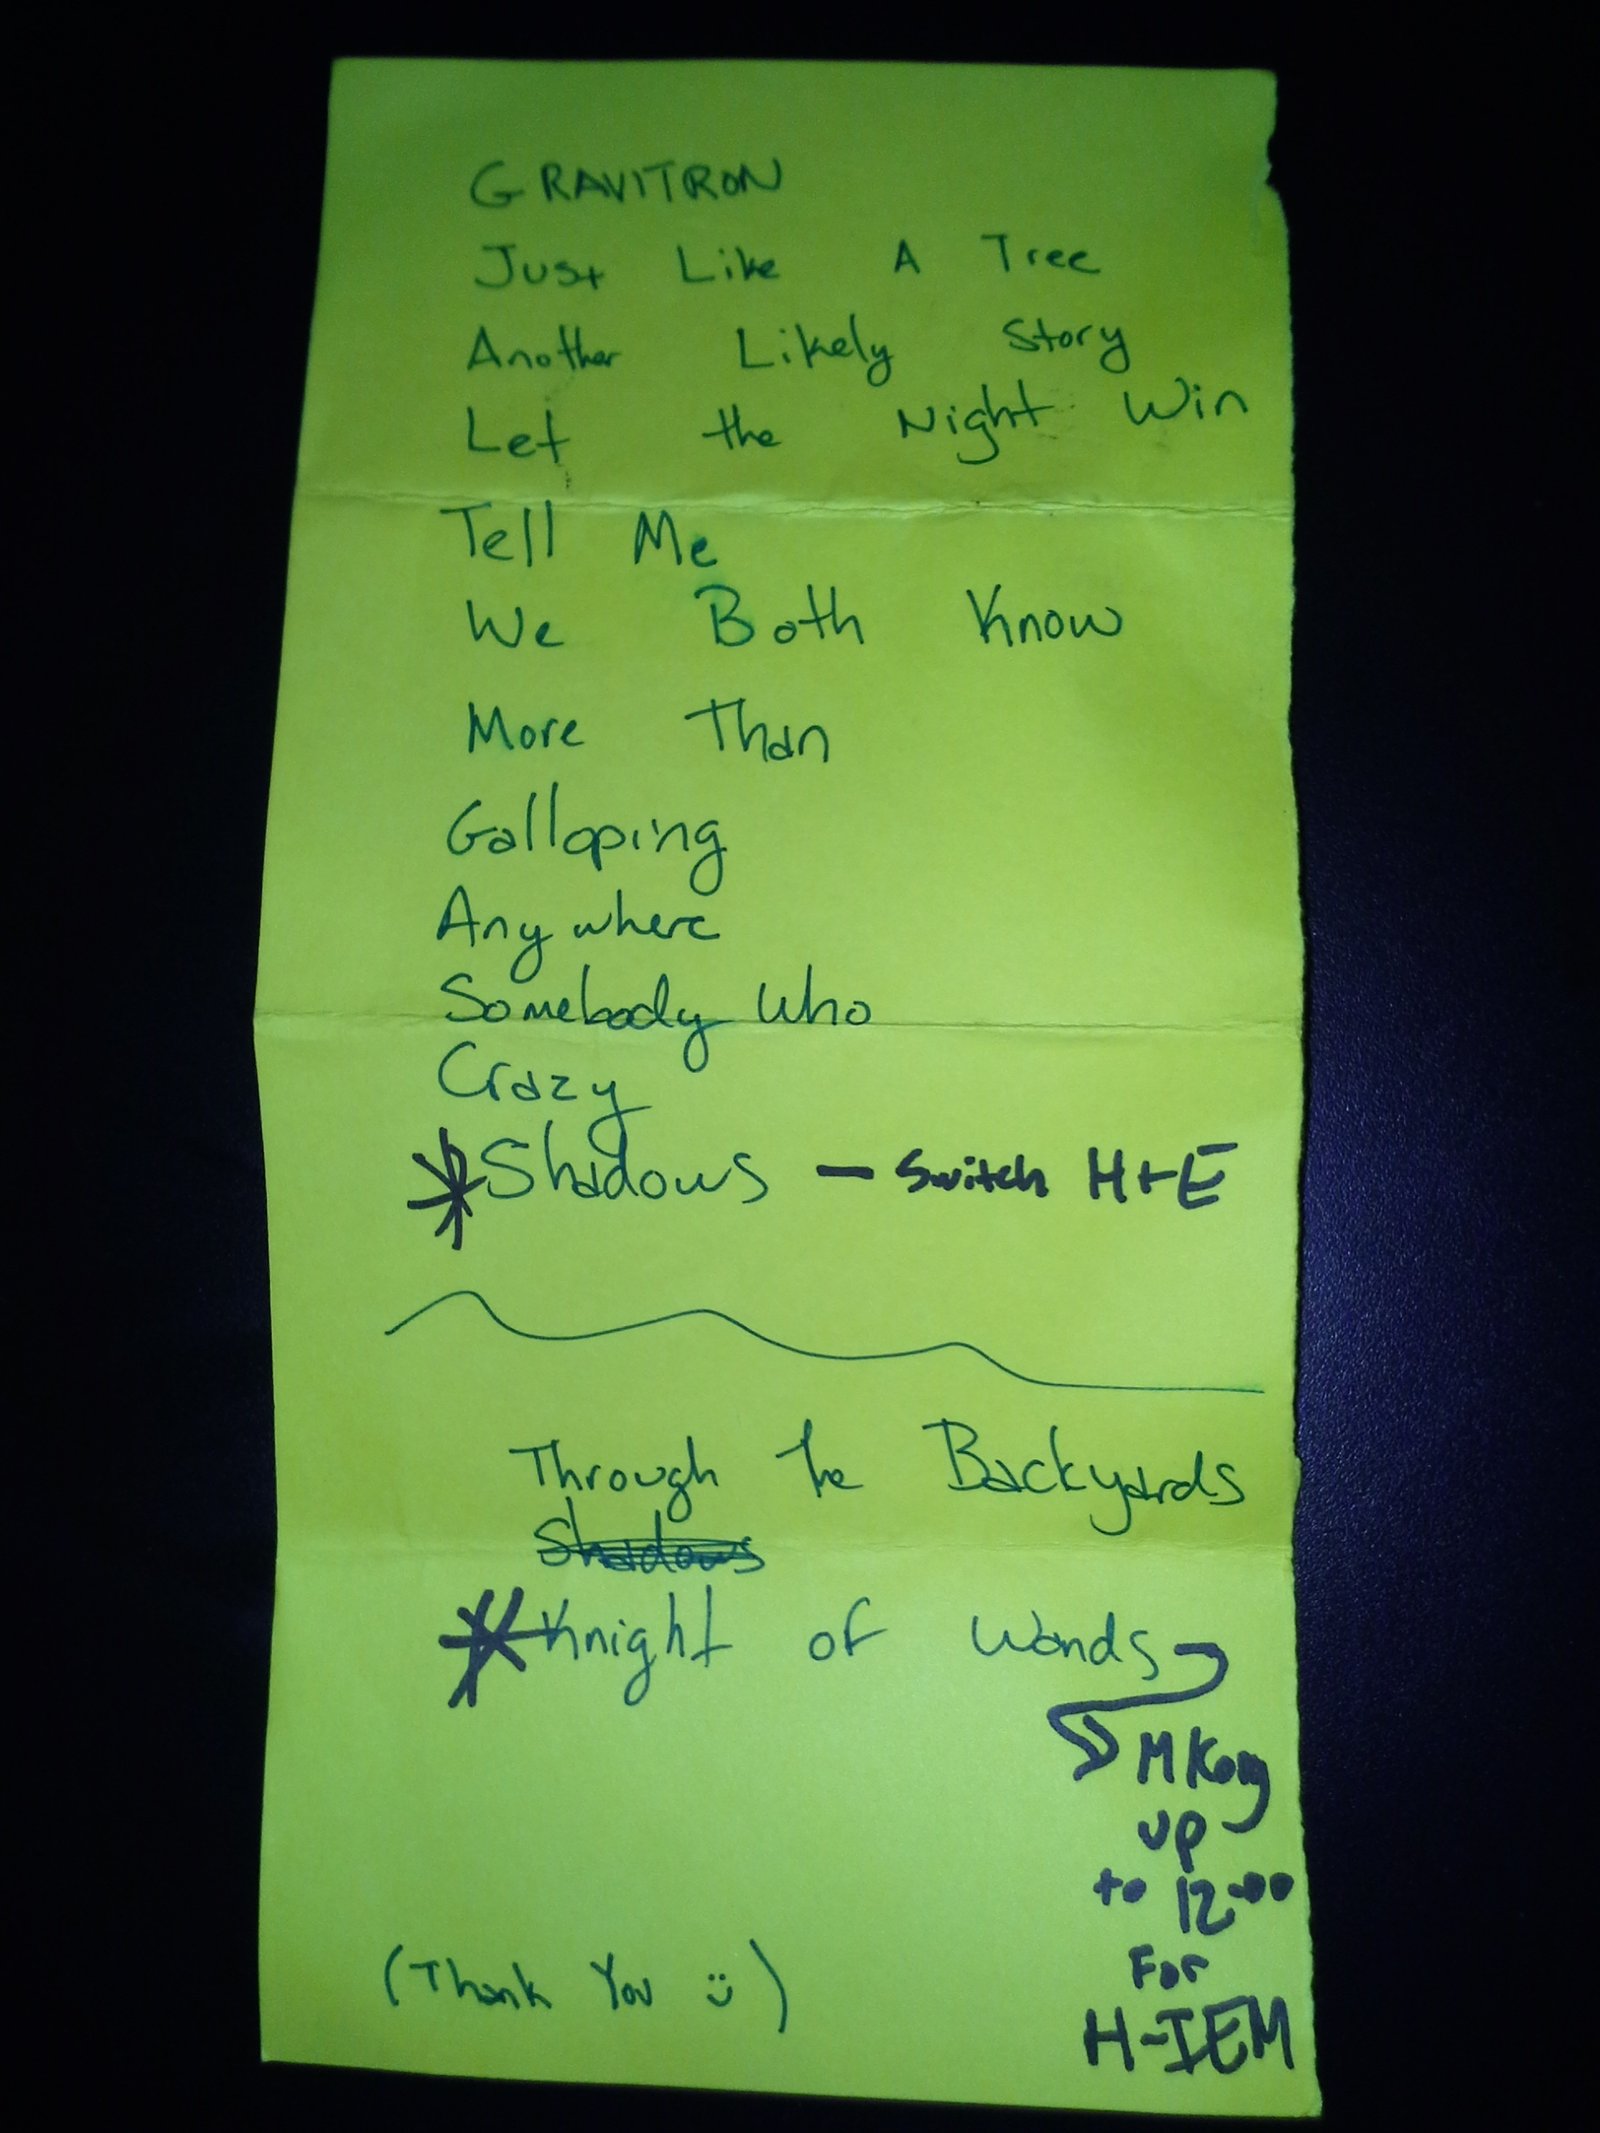 GRAVITRON
Just Like A Tree
Another Likely Story
Let the Night Win
Tell Me
We Both Know
More Than
Galloping
Anywhere
Somebody Who
Crazy
*Shadows - Switch H+E
Through the Backyards
Shadows
*Knight of Wands
M Korg
up
to 12:00
For
H-IEM
(Thank You :))